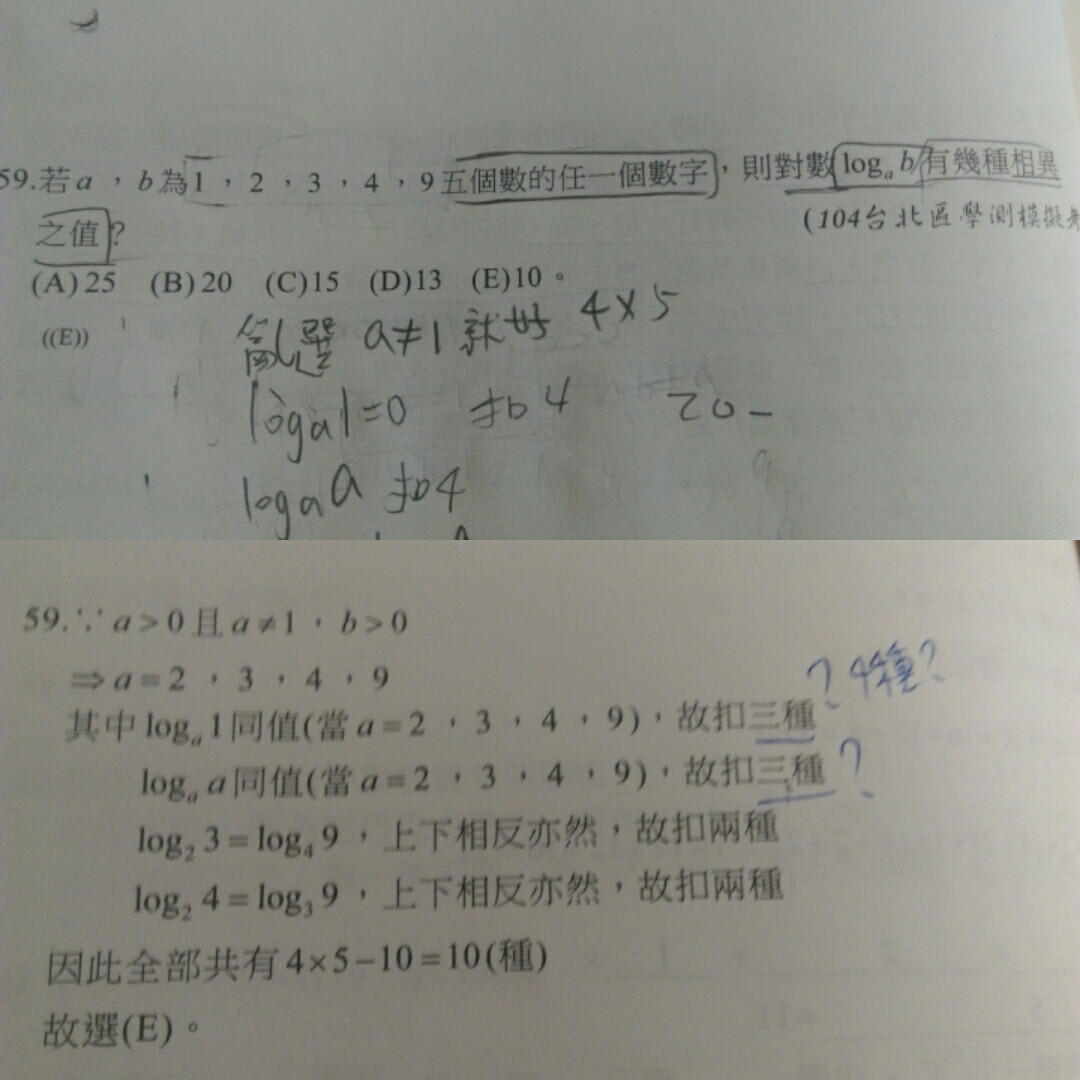 59.若a，b為1，2，3，4，9五個數的任一個數字，則對數logₐb有幾種相異
之值？
(104台北區學測模擬考
(A)25 (B)20 (C)15 (D)13 (E)10。
((E))
亂選 a≠1 就好 4×5
logₐ1=0 扣4 20-
logₐa 扣4
59.∵a>0且a≠1，b>0
⇒a=2，3，4，9
?4種?
其中logₐ1同值(當a=2，3，4，9)，故扣三種
logₐa同值(當a=2，3，4，9)，故扣三種?
log₂3=log₄9，上下相反亦然，故扣兩種
log₂4=log₃9，上下相反亦然，故扣兩種
因此全部共有4×5-10=10(種)
故選(E)。